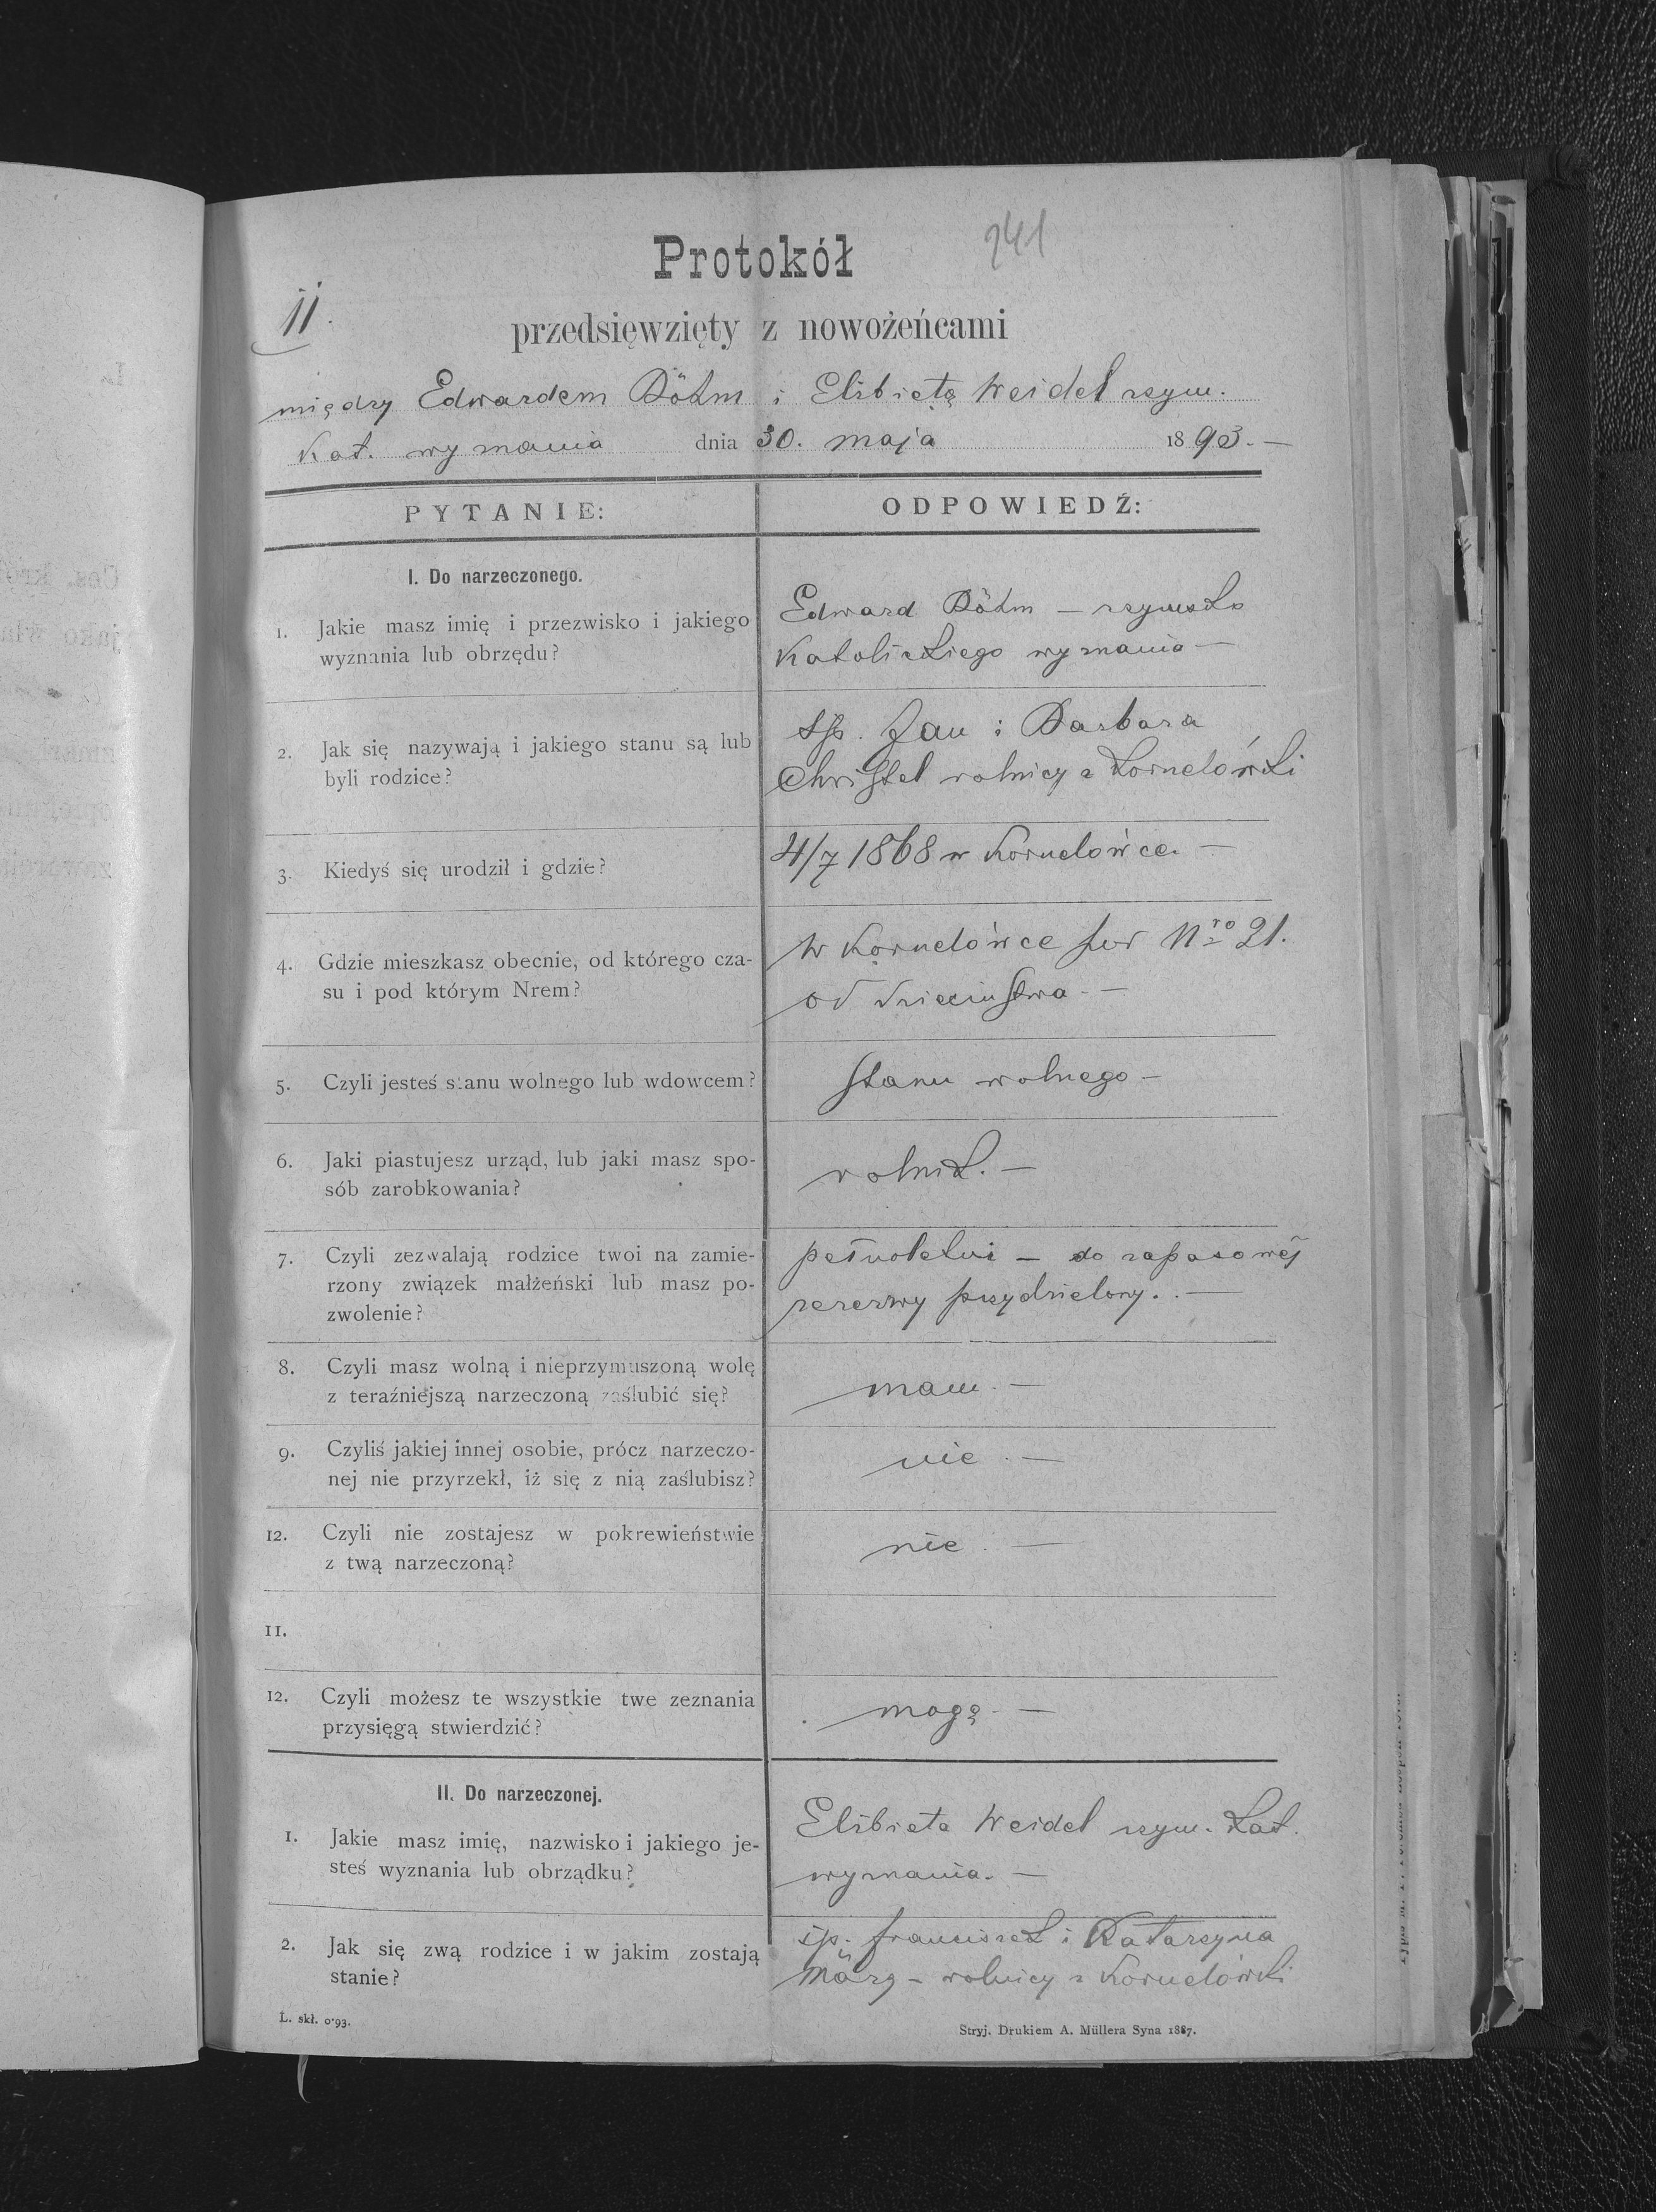 241
Protokół
11.
przedsięwzięty z nowożeńcami
między Edwardem Böhm i Elżbietą Weidel rzym.
kat. wyznania dnia 30. maja 1893. —
PYTANIE: ODPOWIEDŹ:
I. Do narzeczonego.
1. Jakie masz imię i przezwisko i jakiego
wyznania lub obrzędu?
Edward Böhm — rzymsko
katolickiego wyznania —
2. Jak się nazywają i jakiego stanu są lub
byli rodzice?
śp. Jan i Barbara
Christel rolnicy z Kornelówki
3. Kiedyś się urodził i gdzie?
4/7 1868 w Kornelówce. —
4. Gdzie mieszkasz obecnie, od którego cza-
su i pod którym Nrem?
w Kornelówce pod Nro 21.
od dzieciństwa. —
5. Czyli jesteś stanu wolnego lub wdowcem?
stanu wolnego —
6. Jaki piastujesz urząd, lub jaki masz spo-
sób zarobkowania?
rolnik. —
7. Czyli zezwalają rodzice twoi na zamie-
rzony związek małżeński lub masz po-
zwolenie?
pełnoletni — do zapasowéj
rezerwy przydzielony. —
8. Czyli masz wolną i nieprzymuszoną wolę
z teraźniejszą narzeczoną zaślubić się?
mam. —
9. Czyliś jakiej innej osobie, prócz narzeczo-
nej nie przyrzekł, iż się z nią zaślubisz?
nie. —
12. Czyli nie zostajesz w pokrewieństwie
z twą narzeczoną?
nie. —
11.
12. Czyli możesz te wszystkie twe zeznania
przysięgą stwierdzić?
mogę. —
II. Do narzeczonej.
1. Jakie masz imię, nazwisko i jakiego je-
steś wyznania lub obrządku?
Elżbieta Weidel rzym. kat.
wyznania. —
2. Jak się zwą rodzice i w jakim zostają
stanie?
śp. Franciszek i Katarzyna
März — rolnicy z Kornelówki
L. skł. 0·93.
Stryj. Drukiem A. Müllera Syna 1887.